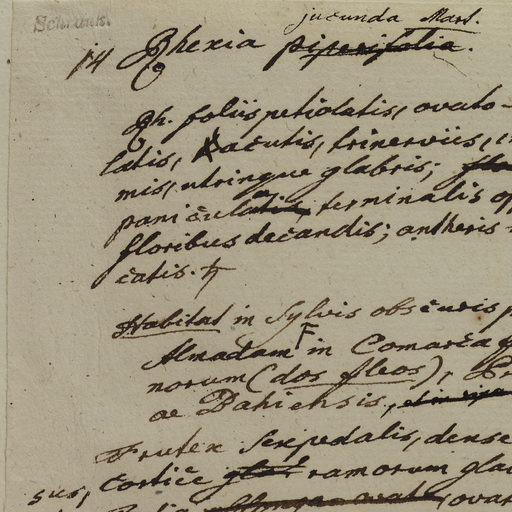 Schrank.
jucunda Mart.
14 Rhexia piperifolia.
Rh. foliis petiolatis, ovato-
latis, acutis, trinerviis,
mis, utrinque glabris;
paniculatis, terminalis
floribus decandis; antheris
catis. ♄
Habitat in Sylvis obscuris
Almadam F in Comarca
norum (dos Ileos),
ae Bahiensis, et in ripa
Frutex sexpedalis, dense
sus, Cortice ramorum
oblongae ovatae, ovat